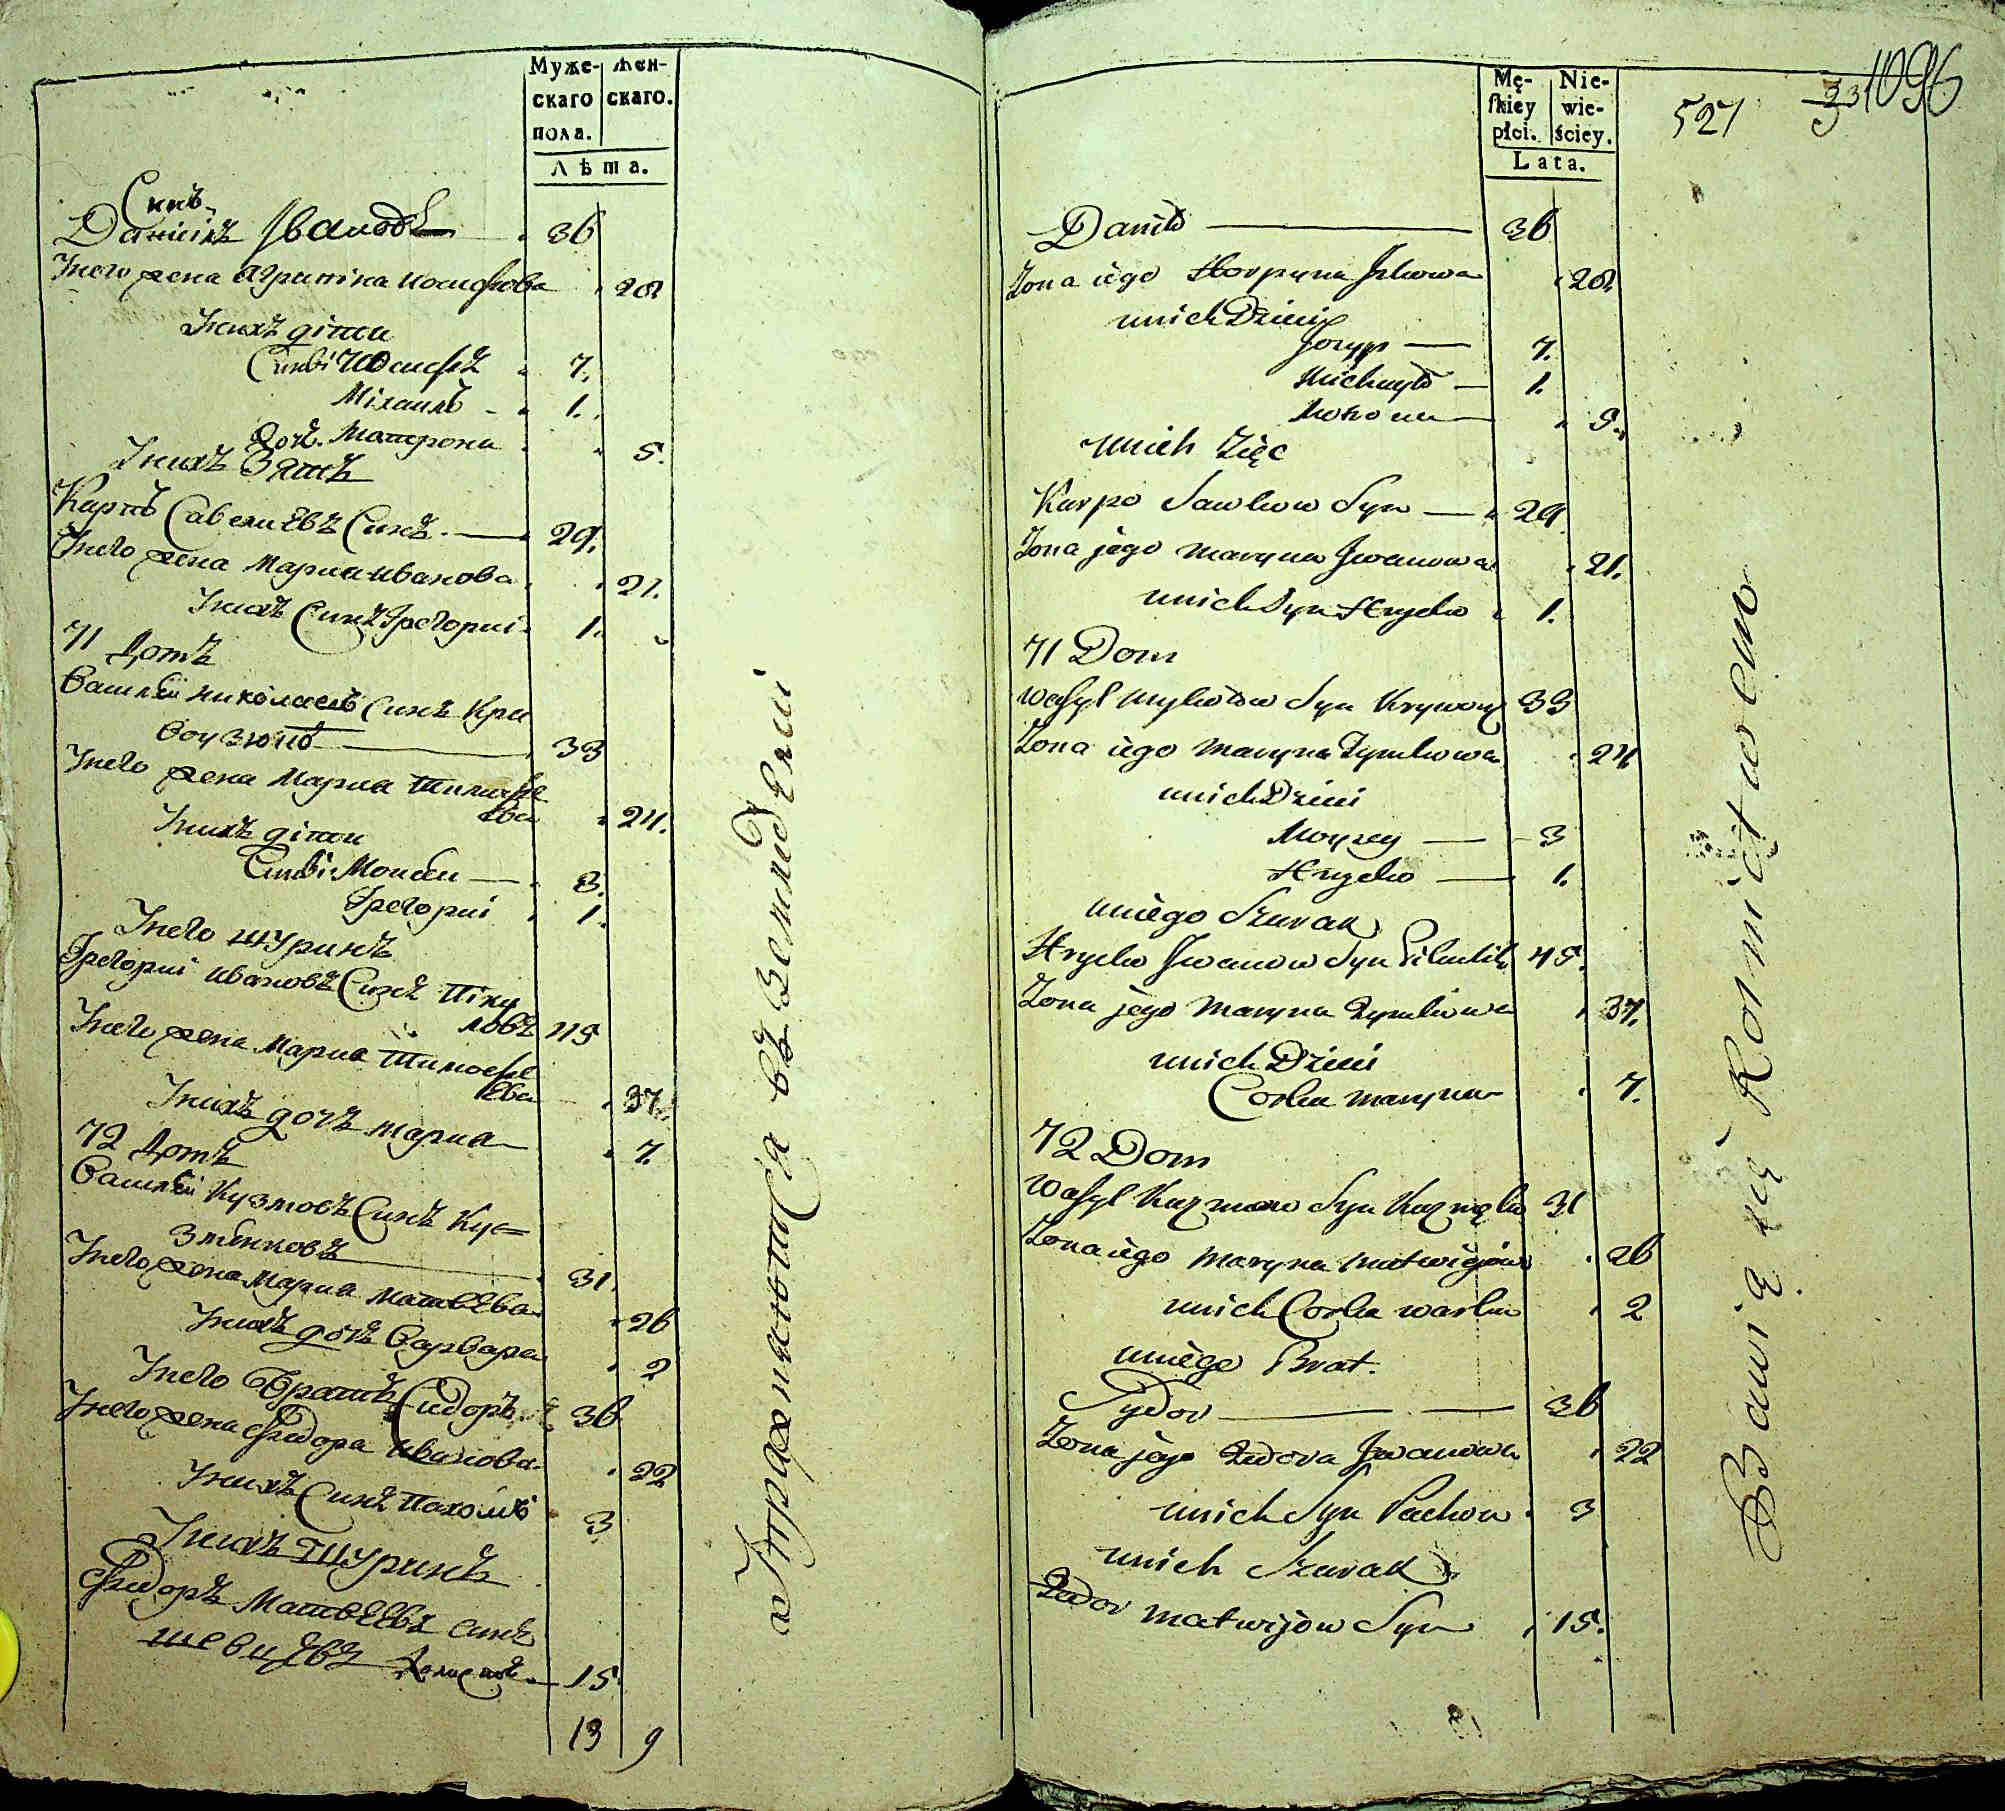 Муже- жен-
скаго скаго.
пола.
Лѣта.
Синъ
Даниілъ Ивановъ 36
Унего жена Агрипіна Иосифова 28
Унихъ діти
Синві Иосифъ 7.
Міхаилъ 1.
Дочь Матрона 5.
Унихъ Зять
Карпъ Савелиевъ Синъ 29.
Унего жена Мариа иванова 21.
Унихъ Синъ Григорий 1.
71 Домъ
Василий николаевъ Синъ Кри
воузюпъ 33
Унего жена Мариа Тимофе
ева 24.
Унихъ діти
Синві Моисей 3.
Григорий 1.
Унего шуринъ
Григорий ивановъ Синъ Піку
ловъ 45
Унего жена Мариа Тимофе
ева 37.
Унихъ дочь мариа 7.
72 Домъ
Василий Кузмовъ Синъ Ку=
зменковъ 31.
Унего жена Мариа Матвеева 26
Унихъ дочь Варвара 2
Унего Братъ Сидоръ 36
Унего жена Фидора иванова 22
Унихъ Синъ Пахомий 3
Унихъ шуринъ
Фидоръ Матвеевъ синъ
шевцевъ 15.
13 9
Упражняются въ Земледелии
527 1096
Mę- Nie-
skiey wie-
płci. ściey.
Lata.
Daniło 36
Żona iego Horpyna Jskowa 28
unich Dzieci
Jozyp 7.
Michayło 1.
5.
unich Zięc
Karpo Sawkow Syn 29
Żona jego Maryna Jwanowa 21.
unich Syn Hryćko 1.
71 Dom
Wasyl Mykołow Syn 33
Żona iego Maryna Tymkowa 24
unich Dzieci
Moysey 3
Hryćko 1.
uniego Szurak
Hryćko Jwanow Syn 45.
Żona jego Maryna Tymkowa 37.
unich Dzieci
Corka Maryna 7.
72 Dom
Wasyl Kuzmow Syn 31
Żona iego Maryna Matwiejowa 26
unich Corka Warka 2
uniego Brat.
Sydor 36
Żona jego Jwanowa 22
unich Syn Pachom 3
unich Szurak
Matwijow Syn 15.
Bawią się Rolnictwem